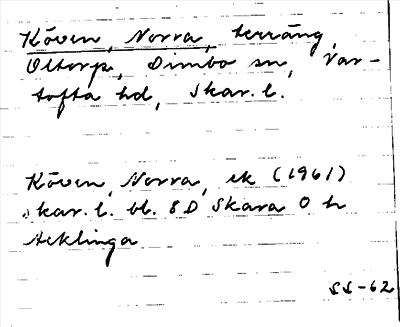 Köven, Norra, terräng,
Oltorp, Dimbo sn, Var-
tofta hd, Skar. l.
Köven, Norra, ek (1961)
Skar. l. bl. 8D Skara 0 h
Acklinga
SS-62